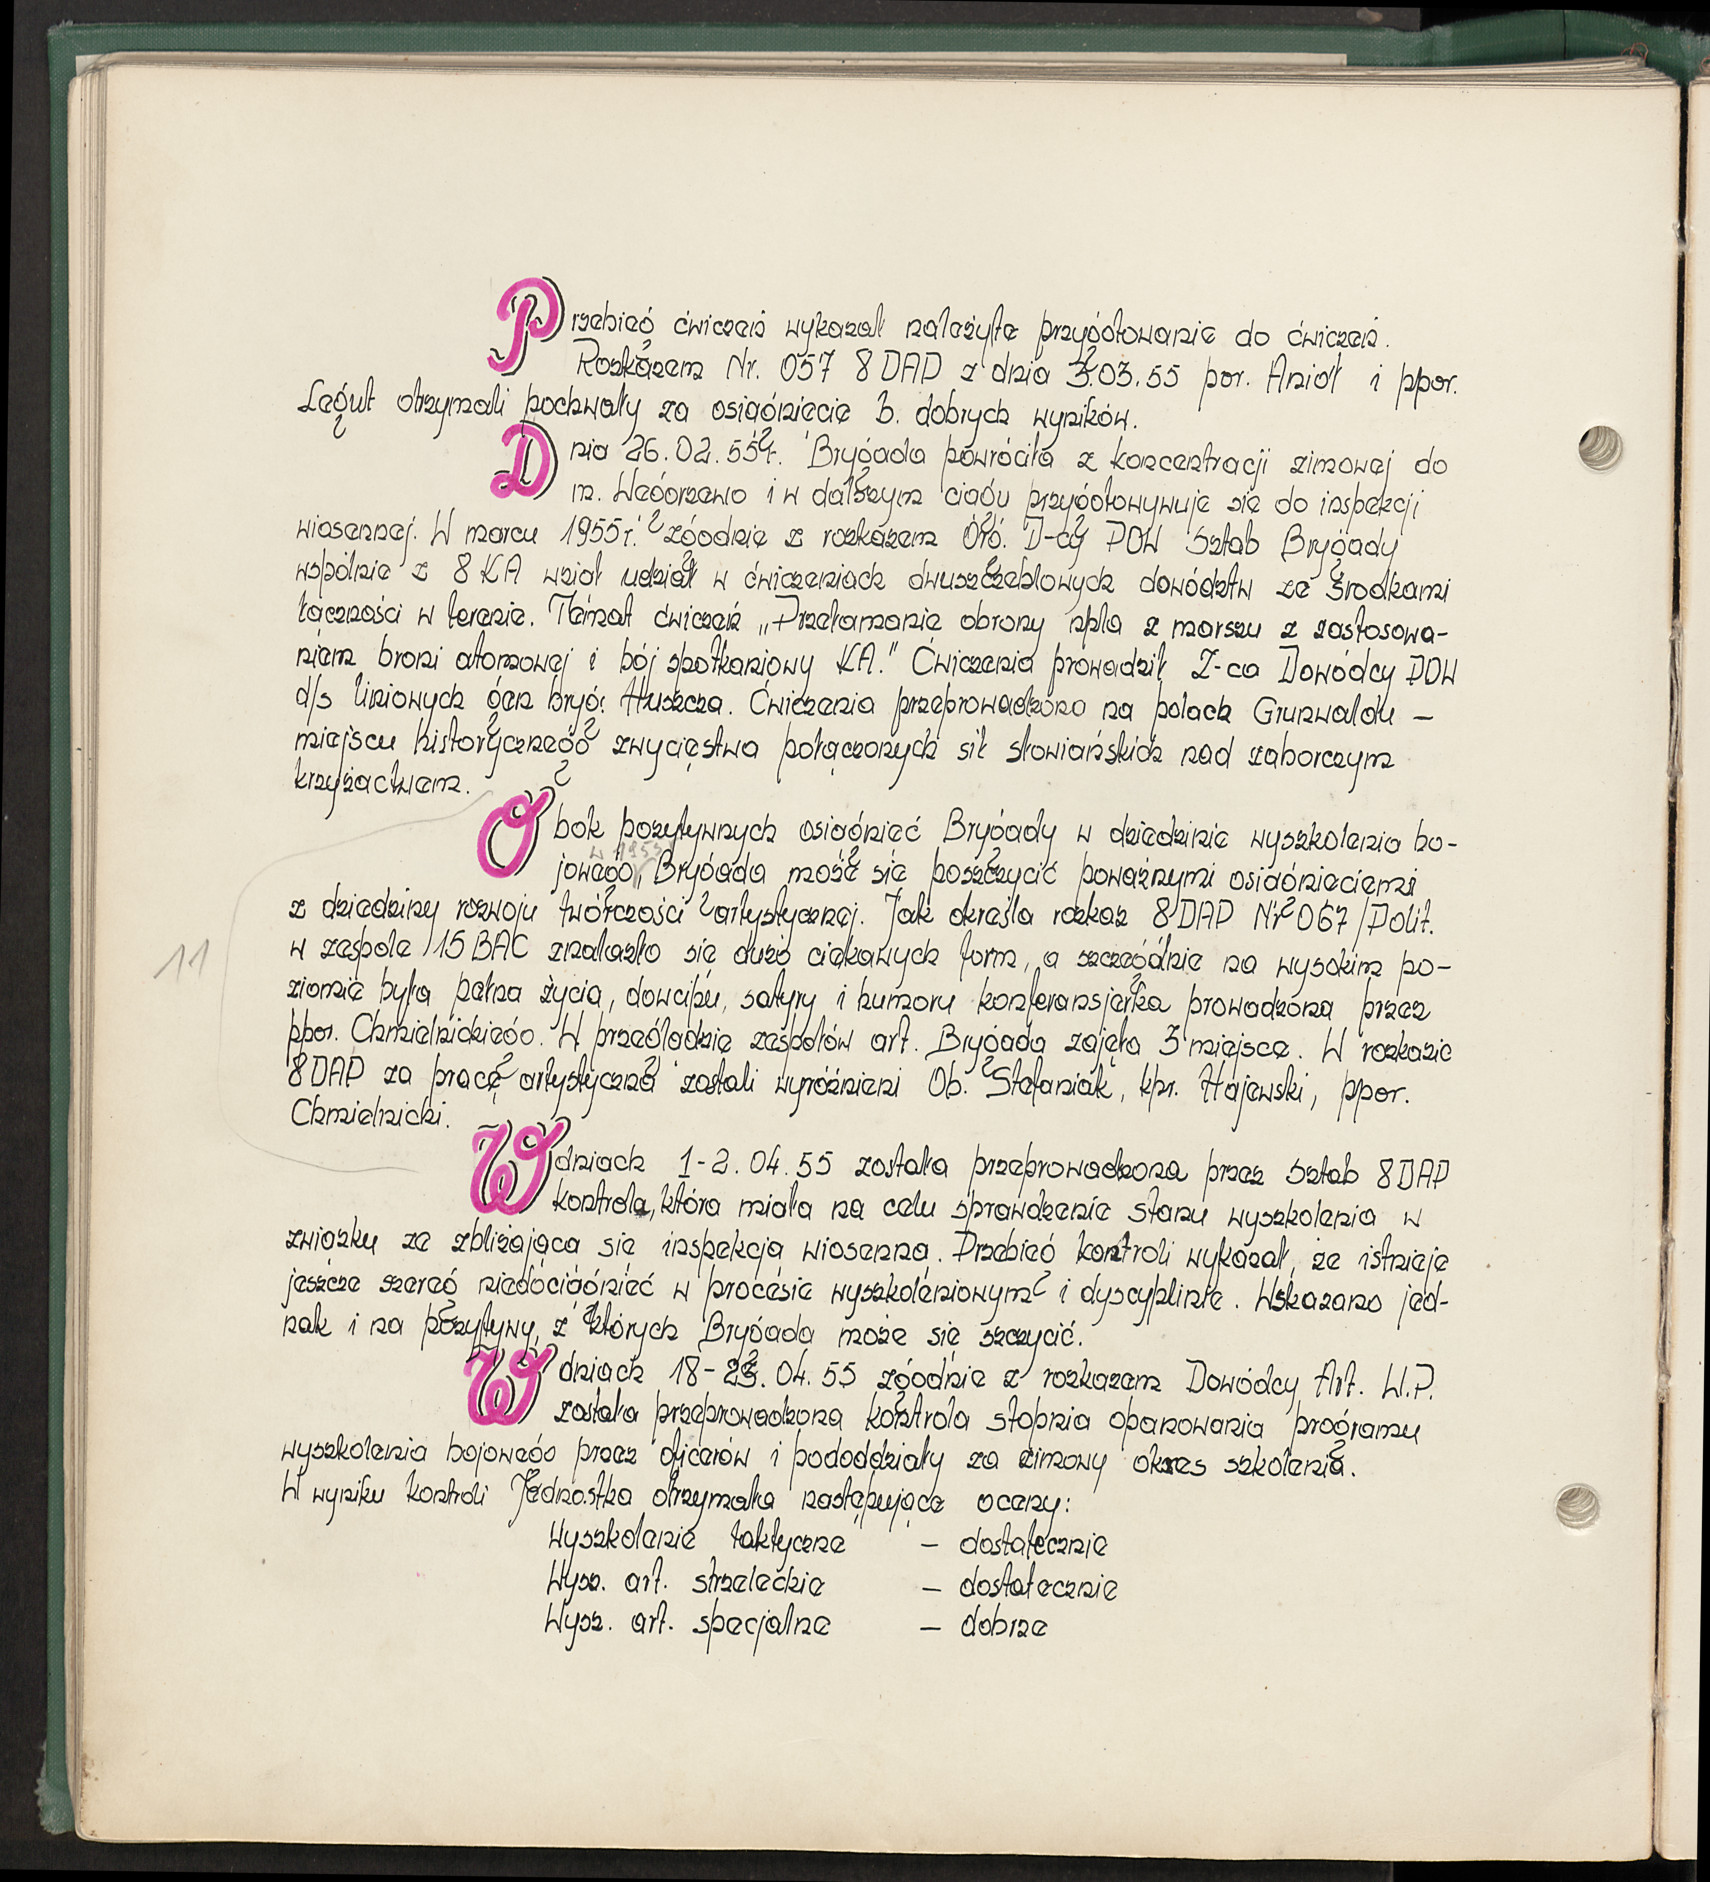 Przebieg ćwiczeń wykazał należyte przygotowanie do ćwiczeń.
Rozkazem Nr. 057 8 DAP z dnia 3.03.55 por. Anioł i ppor.
Legut otrzymali pochwały za osiągnięcie b. dobrych wyników.
Dnia 26.02.55 r. Brygada powróciła z koncentracji zimowej do
m. Węgorzewo i w dalszym ciągu przygotowywuje się do inspekcji
wiosennej. W marcu 1955 r. zgodnie z rozkazem Org. D-cy POW Sztab Brygady
wspólnie z 8 KA wziął udział w ćwiczeniach dwuszczeblowych dowództw ze środkami
łączności w terenie. Temat ćwiczeń „Przełamanie obrony npla z marszu z zastosowa-
niem broni atomowej i bój spotkaniowy KA." Ćwiczenia prowadził Z-ca Dowódcy POW
d/s liniowych gen bryg. Huszcza. Ćwiczenia przeprowadzono na polach Grunwaldu –
miejscu historycznego zwycięstwa połączonych sił słowiańskich nad zaborczym
krzyżactwem.
Obok pozytywnych osiągnięć Brygady w dziedzinie wyszkolenia bo-
w 1955
jowego, Brygada może się poszczycić poważnymi osiągnięciemi
z dziedziny rozwoju twórczości artystycznej. Jak określa rozkaz 8 DAP Nr 067/Polit.
w zespole 15 BAC znalazło się dużo ciekawych form, a szczególnie na wysokim po-
11
ziomie była pełna życia, dowcipu, satyry i humoru konferansjerka prowadzona przez
ppor. Chmielnickiego. W przeglądzie zespołów art. Brygada zajęła 3 miejsce. W rozkazie
8 DAP za pracę artystyczną zostali wyróżnieni Ob. Stefaniak, kpr. Hajewski, ppor.
Chmielnicki.
W dniach 1-2.04.55 została przeprowadzona przez Sztab 8 DAP
kontrola, która miała na celu sprawdzenie stanu wyszkolenia w
związku ze zbliżającą się inspekcją wiosenną. Przebieg kontroli wykazał, że istnieje
jeszcze szereg niedociągnięć w procesie wyszkoleniowym i dyscyplinie. Wskazano jed-
nak i na pozytywy, z których Brygada może się szczycić.
W dniach 18-23.04.55 zgodnie z rozkazem Dowódcy Art. W.P.
została przeprowadzona kontrola stopnia opanowania programu
wyszkolenia bojowego przez oficerów i pododdziały za zimowy okres szkolenia.
W wyniku kontroli Jednostka otrzymała następujące oceny:
Wyszkolenie taktyczne – dostatecznie
Wysz. art. strzeleckie – dostatecznie
Wysz. art. specjalne – dobrze